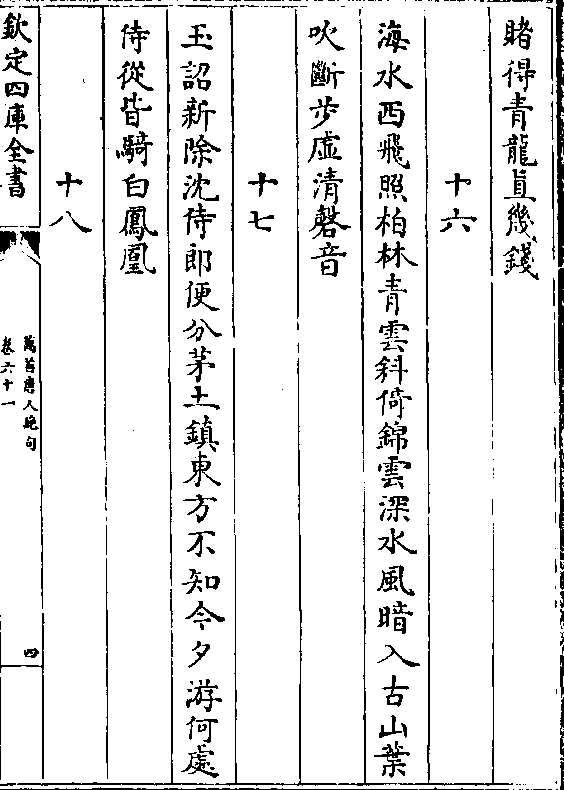 賭得青龍直幾錢
十六
海水西飛照柏林青雲斜倚錦雲深水風暗入古山葉
吹斷步虛清磬音
十七
玉詔新除沈侍郎便分茅土鎮東方不知今夕游何處
侍從皆騎白鳳凰
十八
欽定四庫全書
萬首唐人絶句
卷六十一
四